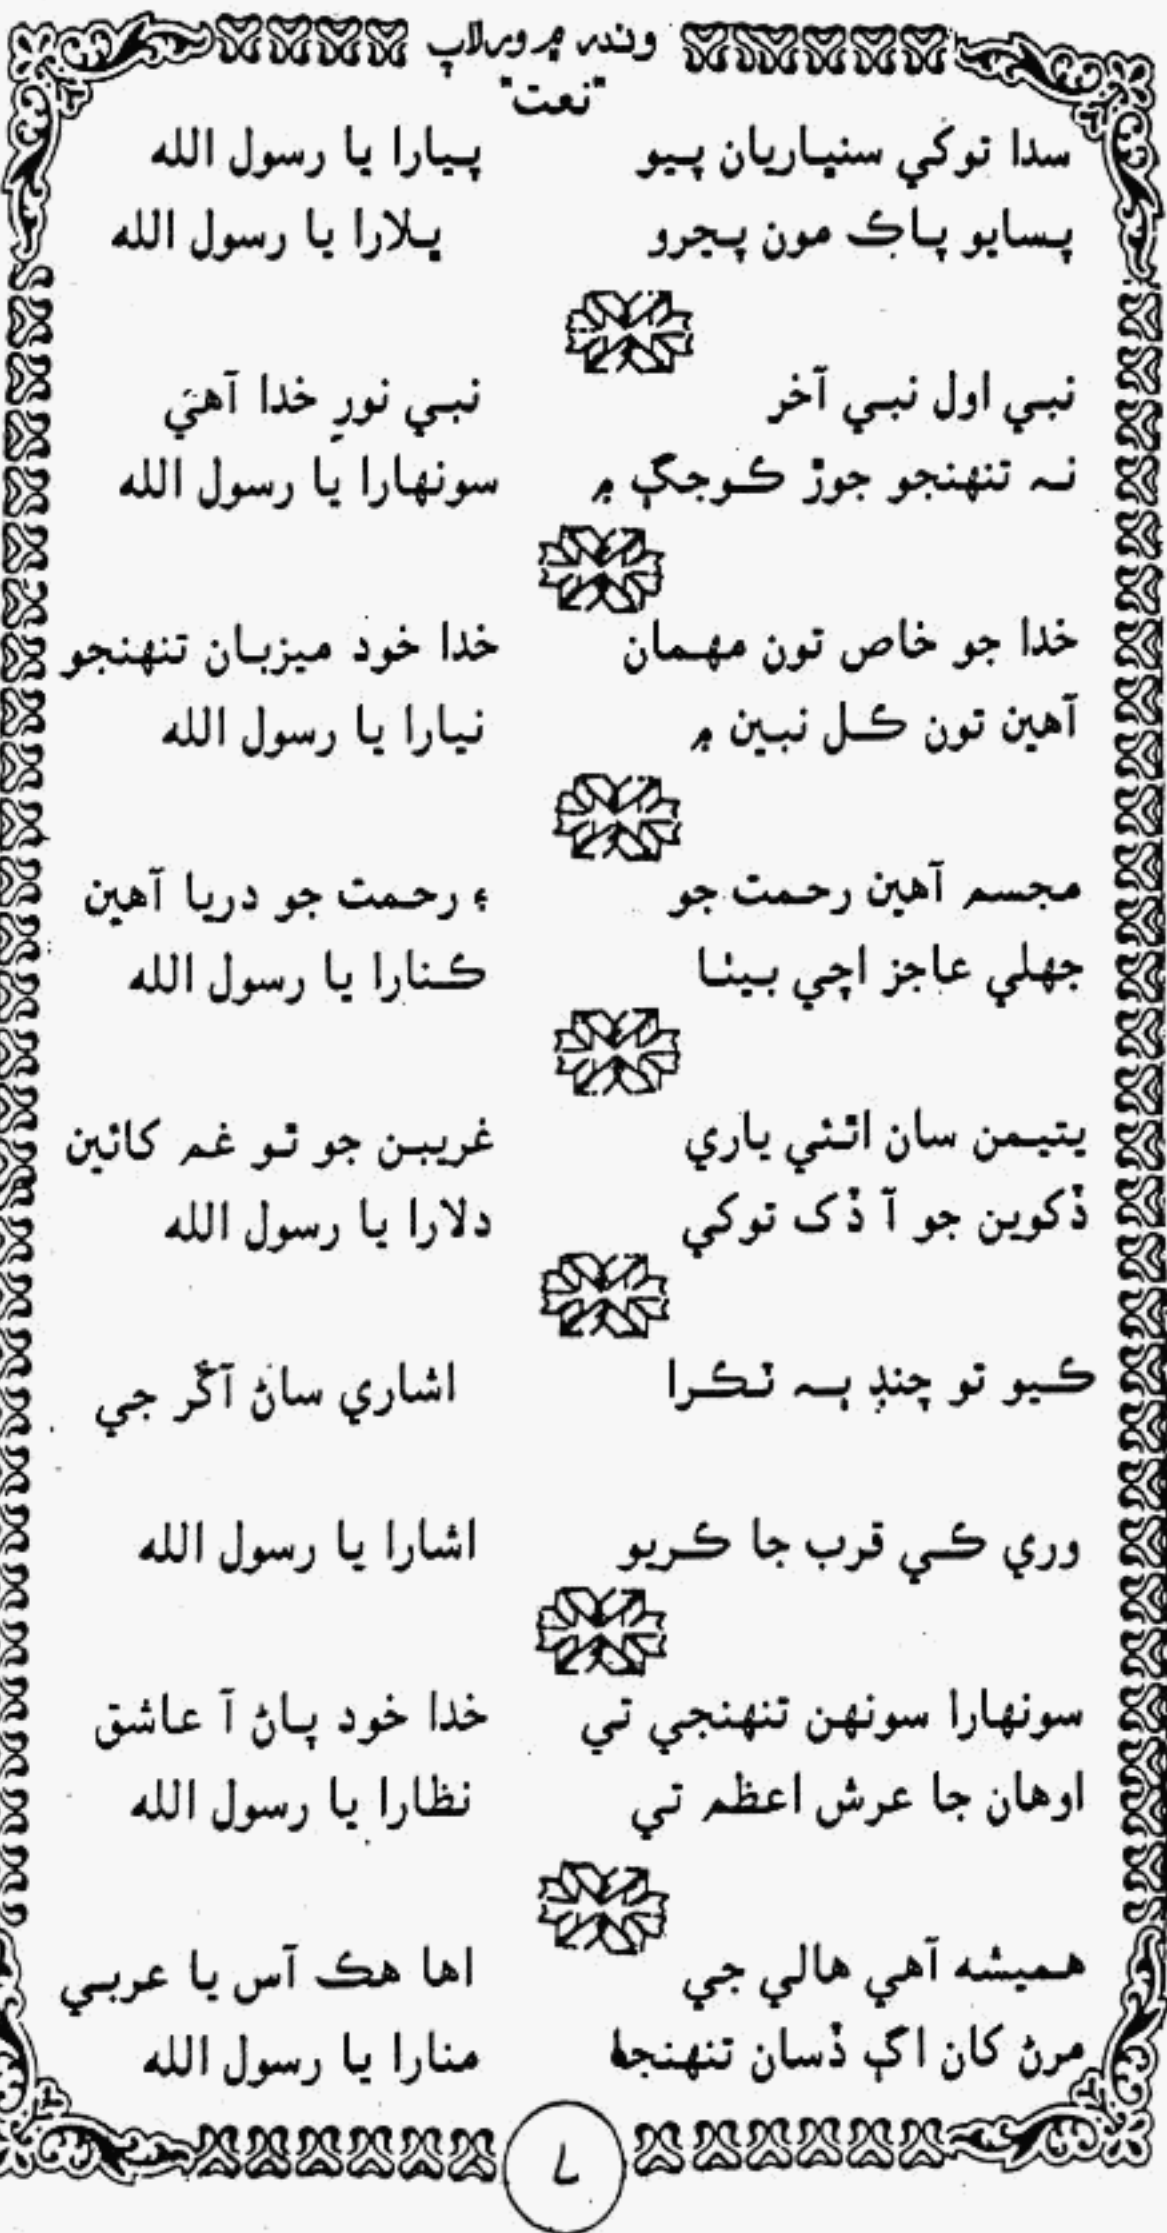 وندر ۾ ورلاپ
"نعت"
سدا توکي سنڀاريان پيو پيارا يا رسول الله
پسايو پاڪ مون پڃرو ڀلارا يا رسول الله
نبي اول نبي آخر نبي نورِ خدا آهيَ
نہ تنهنجو جوڙ ڪوجڳ ۾ سونهارا يا رسول الله
خدا جو خاص تون مهمان خدا خود ميزبان تنهنجو
آهين تون ڪل نبين ۾ نيارا يا رسول الله
مجسم آهين رحمت جو ۽ رحمت جو دريا آهين
جهلي عاجز اچي بيٺا ڪنارا يا رسول الله
يتيمن سان اٿئي ياري غريبن جو ٿو غم کائين
ڏکوين جو آ ڏک توکي دلارا يا رسول الله
ڪيو تو چنڊ ٻہ ٽڪرا اشاري ساڻ آڱر جي
وري ڪي قرب جا ڪريو اشارا يا رسول الله
سونهارا سونهن تنهنجي تي خدا خود پاڻ آ عاشق
اوهان جا عرش اعظم تي نظارا يا رسول الله
هميشه آهي هالي جي اها هڪ آس يا عربي
مرڻ کان اڳ ڏسان تنهنجا منارا يا رسول الله
۷